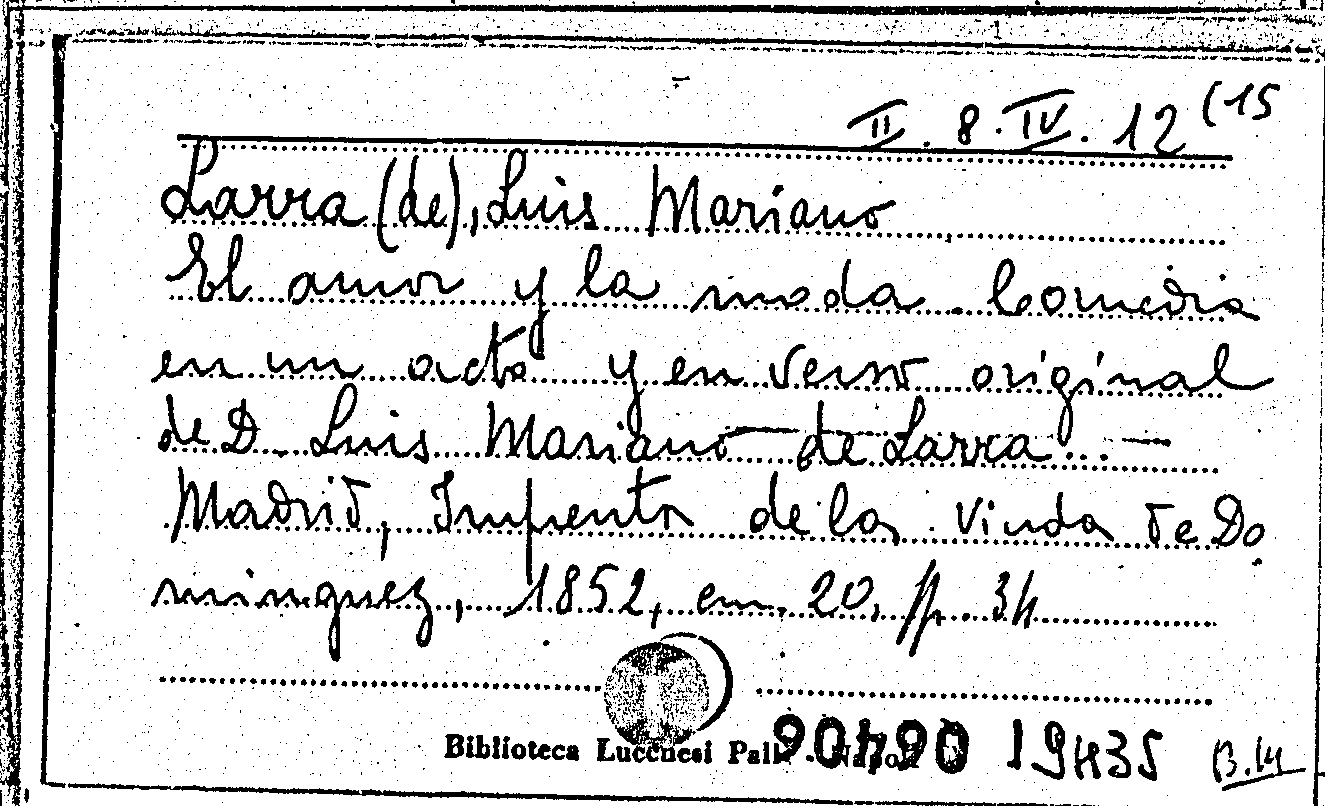 II. 8. IV. 12 (15
Larra (de), Luis Mariano
El amor y la moda. Comedia
en un acto y en verso original
de D. Luis Mariano de Larra... —
Madrid, Imprenta de la Viuda de Do
minguez, 1852, cm. 20, pp. 34
Biblioteca Lucchesi Palli - Napoli
90490 19435